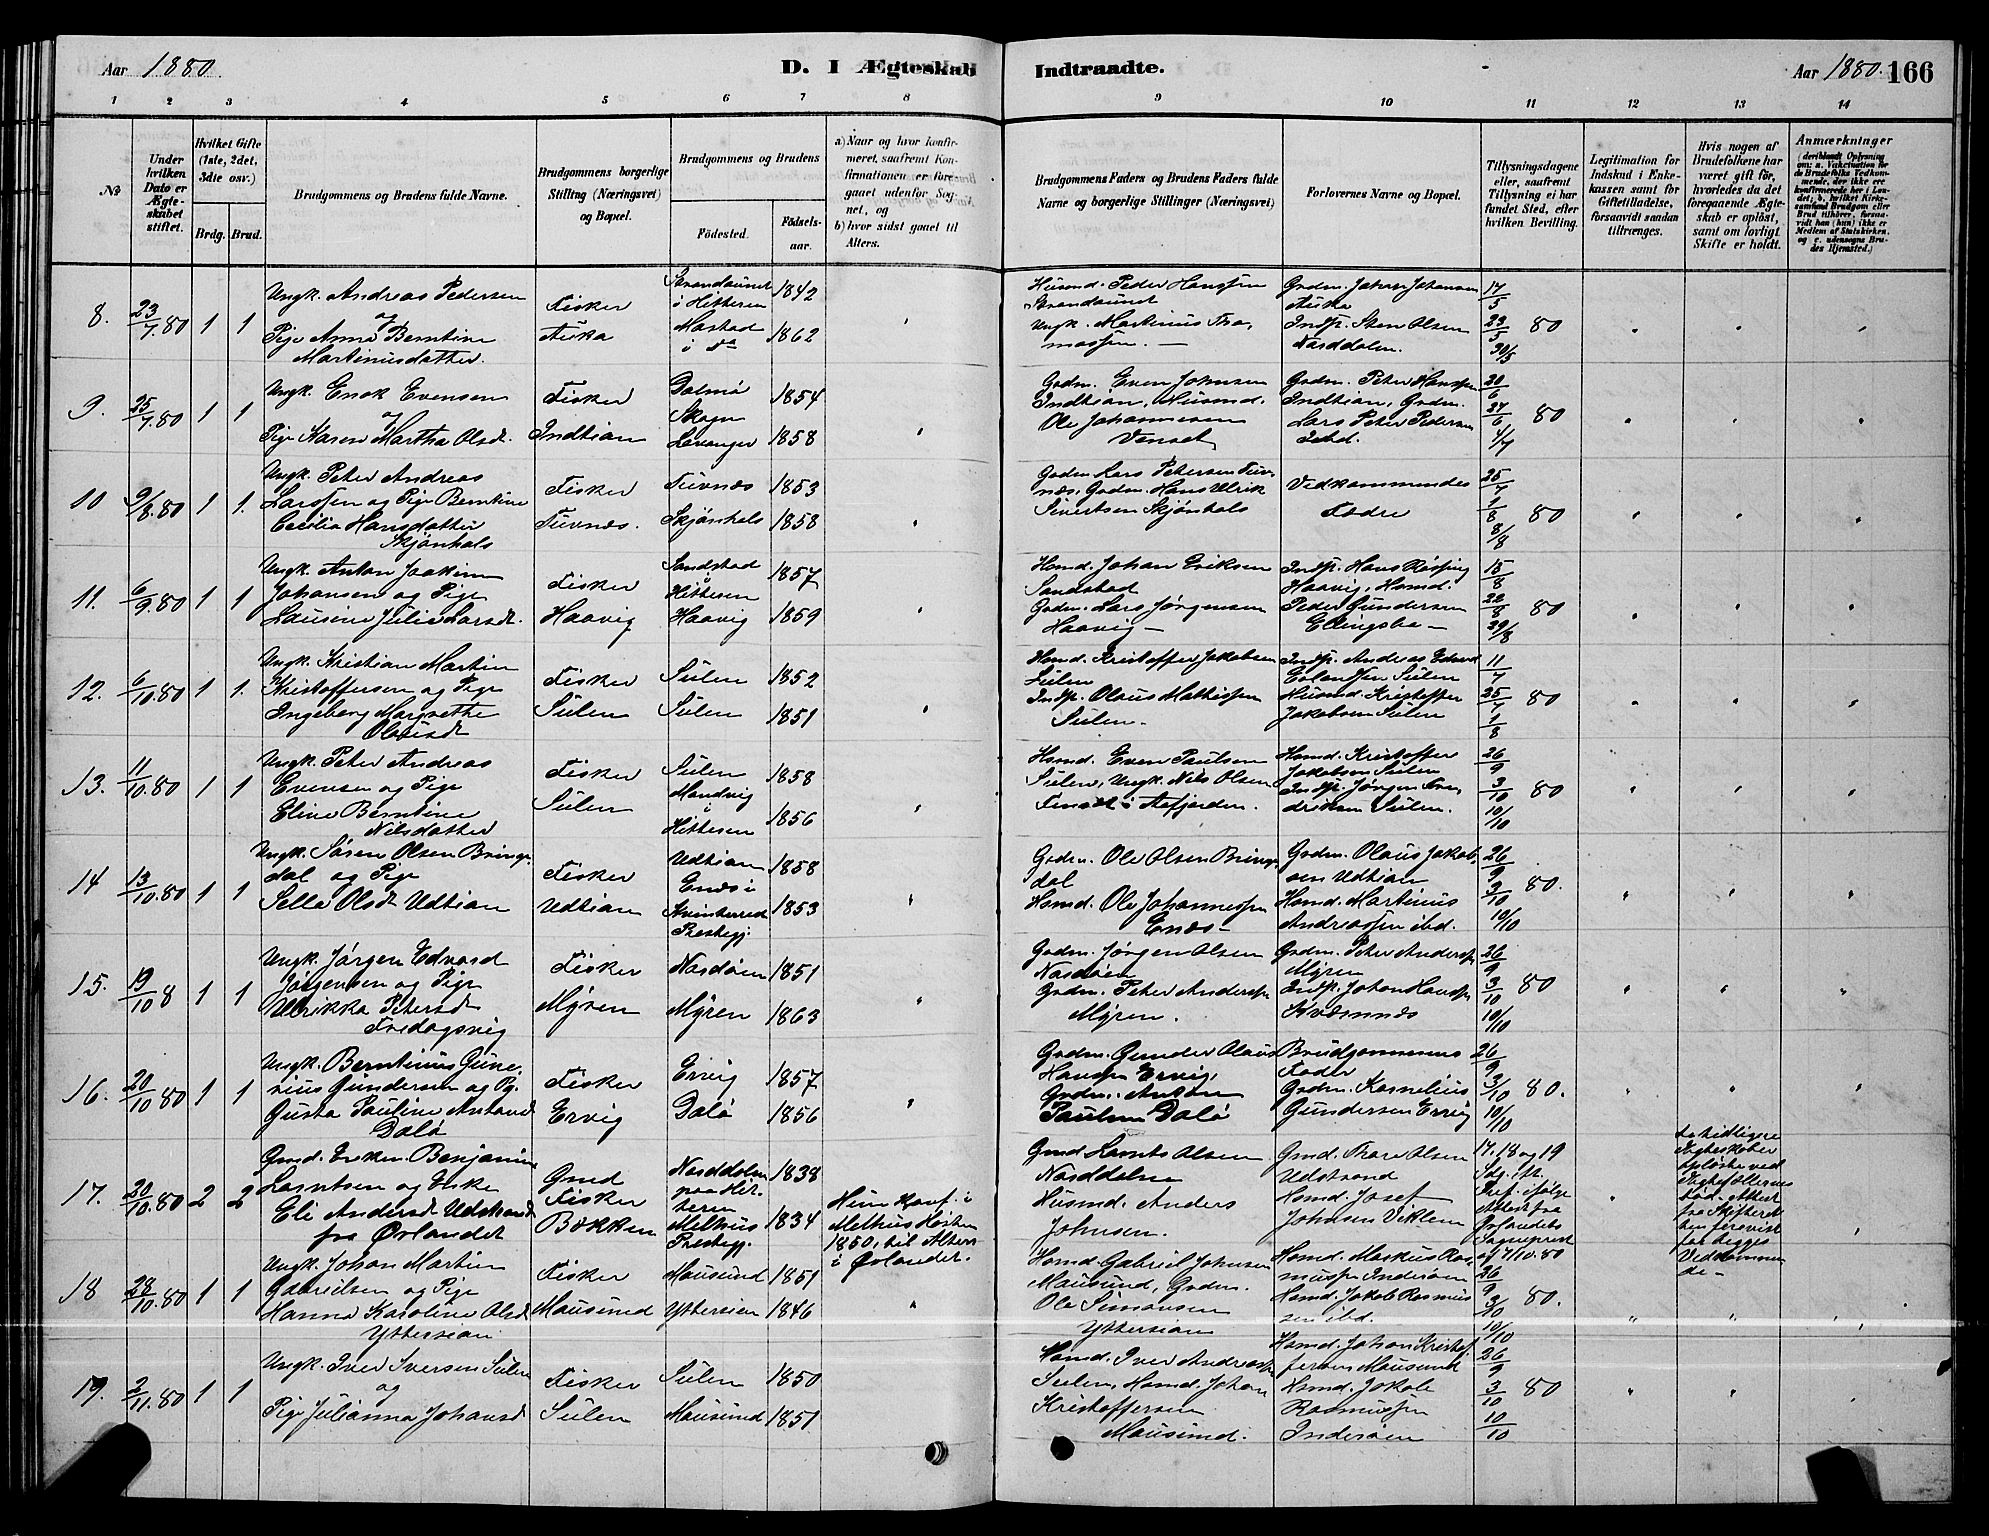 Aar 1880.
D. I Ægteskab Indtraadte.
Aar 1880. 166
1 2 3 4 5 6 7 8 9 10 11 12 13 14
No
Under hvilken Dato er Ægteskabet stiftet.
Hvilket Gifte (1ste, 2det, 3die osv.)
Brdg. Brud.
Brudgommens og Brudens fulde Navne.
Brudgommens borgerlige Stilling (Næringsvei) og Bopæl.
Brudgommens og Brudens
Fødested. Fødselsaar.
a) Naar og hvor konfirmeret, saafremt Konfirmationen er foregaaet udenfor Sognet, og
b) hvor sidst gaaet til Alters.
Brudgommens Faders og Brudens Faders fulde Navne og borgerlige Stillinger (Næringsvei)
Forlovernes Navne og Bopæl.
Tillysningsdagene eller, saafremt Tillysning ei har fundet Sted, efter hvilken Bevilling.
Legitimation for Indskud i Enkekassen samt for Giftetilladelse, forsaavidt saadan tiltrænges.
Hvis nogen af Brudefolkene har været gift før, hvorledes da det foregaaende Ægteskab er opløst, samt om lovligt Skifte er holdt.
Anmærkninger
8. 23/7.80 1 1
Ungk. Andreas Pedersen
og
Pige Anna Berntine
Martinusdatter.
Fisker
Strandaunet
i Hitteren 1842
Mastad
i do 1862
Husmd. Peder Hanssen
Strandaunet
Ungk. Martinus Thomassen. —
Grdm. Johan Johansen
Indsp. Sten Olsen
Norddalen.
17/5
23/5 80
30/5
9. 25/7.80 1 1
Ungk. Enok Evensen
og
Pige Karen Martha Olsd.
Fisker
Indtian
Dolmö 1854
Skogn
Levanger 1858
Grdm. Even Johnsen
Indtian, Husmd.
Ole Johannesen
Venset
Grdm. Peter Hanssen
Indtian, Grdm.
Lars Peter Pedersen
Ibid.
20/6
27/6 80
4/7
10 9/8.80 1 1.
Ungk. Peter Andreas
Larssen og Pige Berntine
Cecilia Hansdatter
Skjönhals
Fisker
Tuvnæs.
Tuvnæs 1853
Skjönhals 1858
Grdm Lars Petersen Tuvnæs, Grdm. Hans Ulrik
Sivertsen Skjönhals
Vedkommendes
Fædre
25/7
1/8 80
8/8
11. 6/9.80 1 1
Ungk. Anton Joakim
Johansen og Pige
Lausine Julie Larsd.
Fisker
Haavig
Sandstad
i
Hitteren 1857
Haavig 1859
Husmd. Johan Eriksen
Sandstad
Grdm. Lars Jørgensen
Haavig —
Haavig, Husmd.
Peder Gundersen
15/8
22/8 80
29/8
12. 6/10.80 1 1.
Ungk. Kristian Martin
Kristoffersen og Pige
Ingeborg Margrethe
Olausd
Fisker
Sulen
Sulen 1852
Sulen 1851
Husmd. Kristoffer Jakobsen
Sulen
Indsp. Olaus Mathissen
Sulen.
Indsp. Andreas Edvard
Erlandsen Sulen
Husmd. Kristoffer
Jakobsen Sulen
11/7
25/7 80
1/8
13. 11/10.80 1 1
Ungk. Peter Andreas
Evensen og Pige
Eline Berntine
Nilsdatter
Fisker
Sulen
Sulen 1858
Mandvig
i
Hitteren 1856
Husmd. Even Paulsen
Sulen, Ungk. Nils Olsen
i Aafjorden.
Husmd. Kristoffer
Jakobsen Sulen
Indsp. Jørgen Fredriksen Sulen.
26/9
3/10 80
10/10
14 13/10.80 1 1
Ungk. Sören Olsen Bringsdal og Pige
Sella Olsdt Udtian
Fisker
Udtian
Udtian 1858
Enæs i
Kvinherred
Prestegj. 1853
Grdm. Ole Olsen Bringsdal
Husmd. Ole Johannessen
Enæs —
Grdm. Olaus Jakobsen Udtian
Husmd. Martinus
Andreassen ibd.
26/9
3/10 80.
10/10
15. 19/10 8 1 1
Ungk. Jørgen Edvard
Jørgensen og Pige
Ulrikka Petersdt
Fredagsvig
Fisker
Mýren
Nordöien 1851
Mýren 1863
Grdm. Jørgen Olsen
Nordöien
Grdm. Peter Anderssen
Mýren.
Grdm. Peter Anderssen
Mýren
Indsp. Johan Hanssen
Kværnnæs
26/9
3/10 80
10/10
16. 20/10 80 1 1
Ungk. Berntinus Gunerius Gundersen og Pg.
Gusta Pauline Antonsd
Dalö
Fisker
Ervig
Ervig 1857
Dalö 1856
Grdm. Gunder Olaus
Hanssen Ervig,
Grdm. Anton
Paulsen Dalö
Brudgommenens
Fader
Grdm. Kornelius
Gundersen Ervig
26/9
3/10 80.
10/10
17. 20/10.80 2 2
Gmd. Enkem. Benjamin
Lorntsen og Enke
Eli Andersdt Udstrand
fra Ørlandet
Gmd
Fisker
Bækken
Norddalen
paa Hitteren 1838
Melhus
Prestegj. 1834
Hun konf. i
Melhus Hösten
1850, til Alters
i Ørlandet.
Gmd Lornts Olsen
Norddalen
Husmd. Anders
Johnsen.
Gmd. Thore Olsen
Udstrand
Husmd. Josef
Johnsen Viklem
17. 18 og 19
Sdg. Tr.
Tref. ifölge
Attest fra
Ørlandets
Sognepræst
af 17/10.80
tidligere
Ægteskaber
oplöste ved
Ægtefællernes
Död. Attest
fra Skifteret
ten forevist
for begges
Vedkommende —
18 28/10.80 1 1
Ungk. Johan Martin
Gabrielsen og Pige
Hanna Karoline Olsd
Yttersian
Fisker
Mausund
Mausund 1851
Yttersian 1846
Husmd. Gabriel Johnsen
Mausund, Grdm.
Ole Simonsen
Yttersian
Husmd. Markus Rasmussen Inderöen
Husmd. Jakob Rasmussen ibd.
26/9
3/10 80.
10/10
19. 2/11.80 1 1
Ungk. Iver Iversen Sulen
og
Pige Julianna Johansd
Fisker
Sulen
Sulen 1850
Mausund 1851
Husmd. Iver Andreassen
Sulen, Husmd. Johan
Kristoffersen
Mausund.
Husmd. Johan Kristoffersen Mausund
Husmd. Jakob
Rasmussen
Inderöen
26/9
3/10 80
10/10